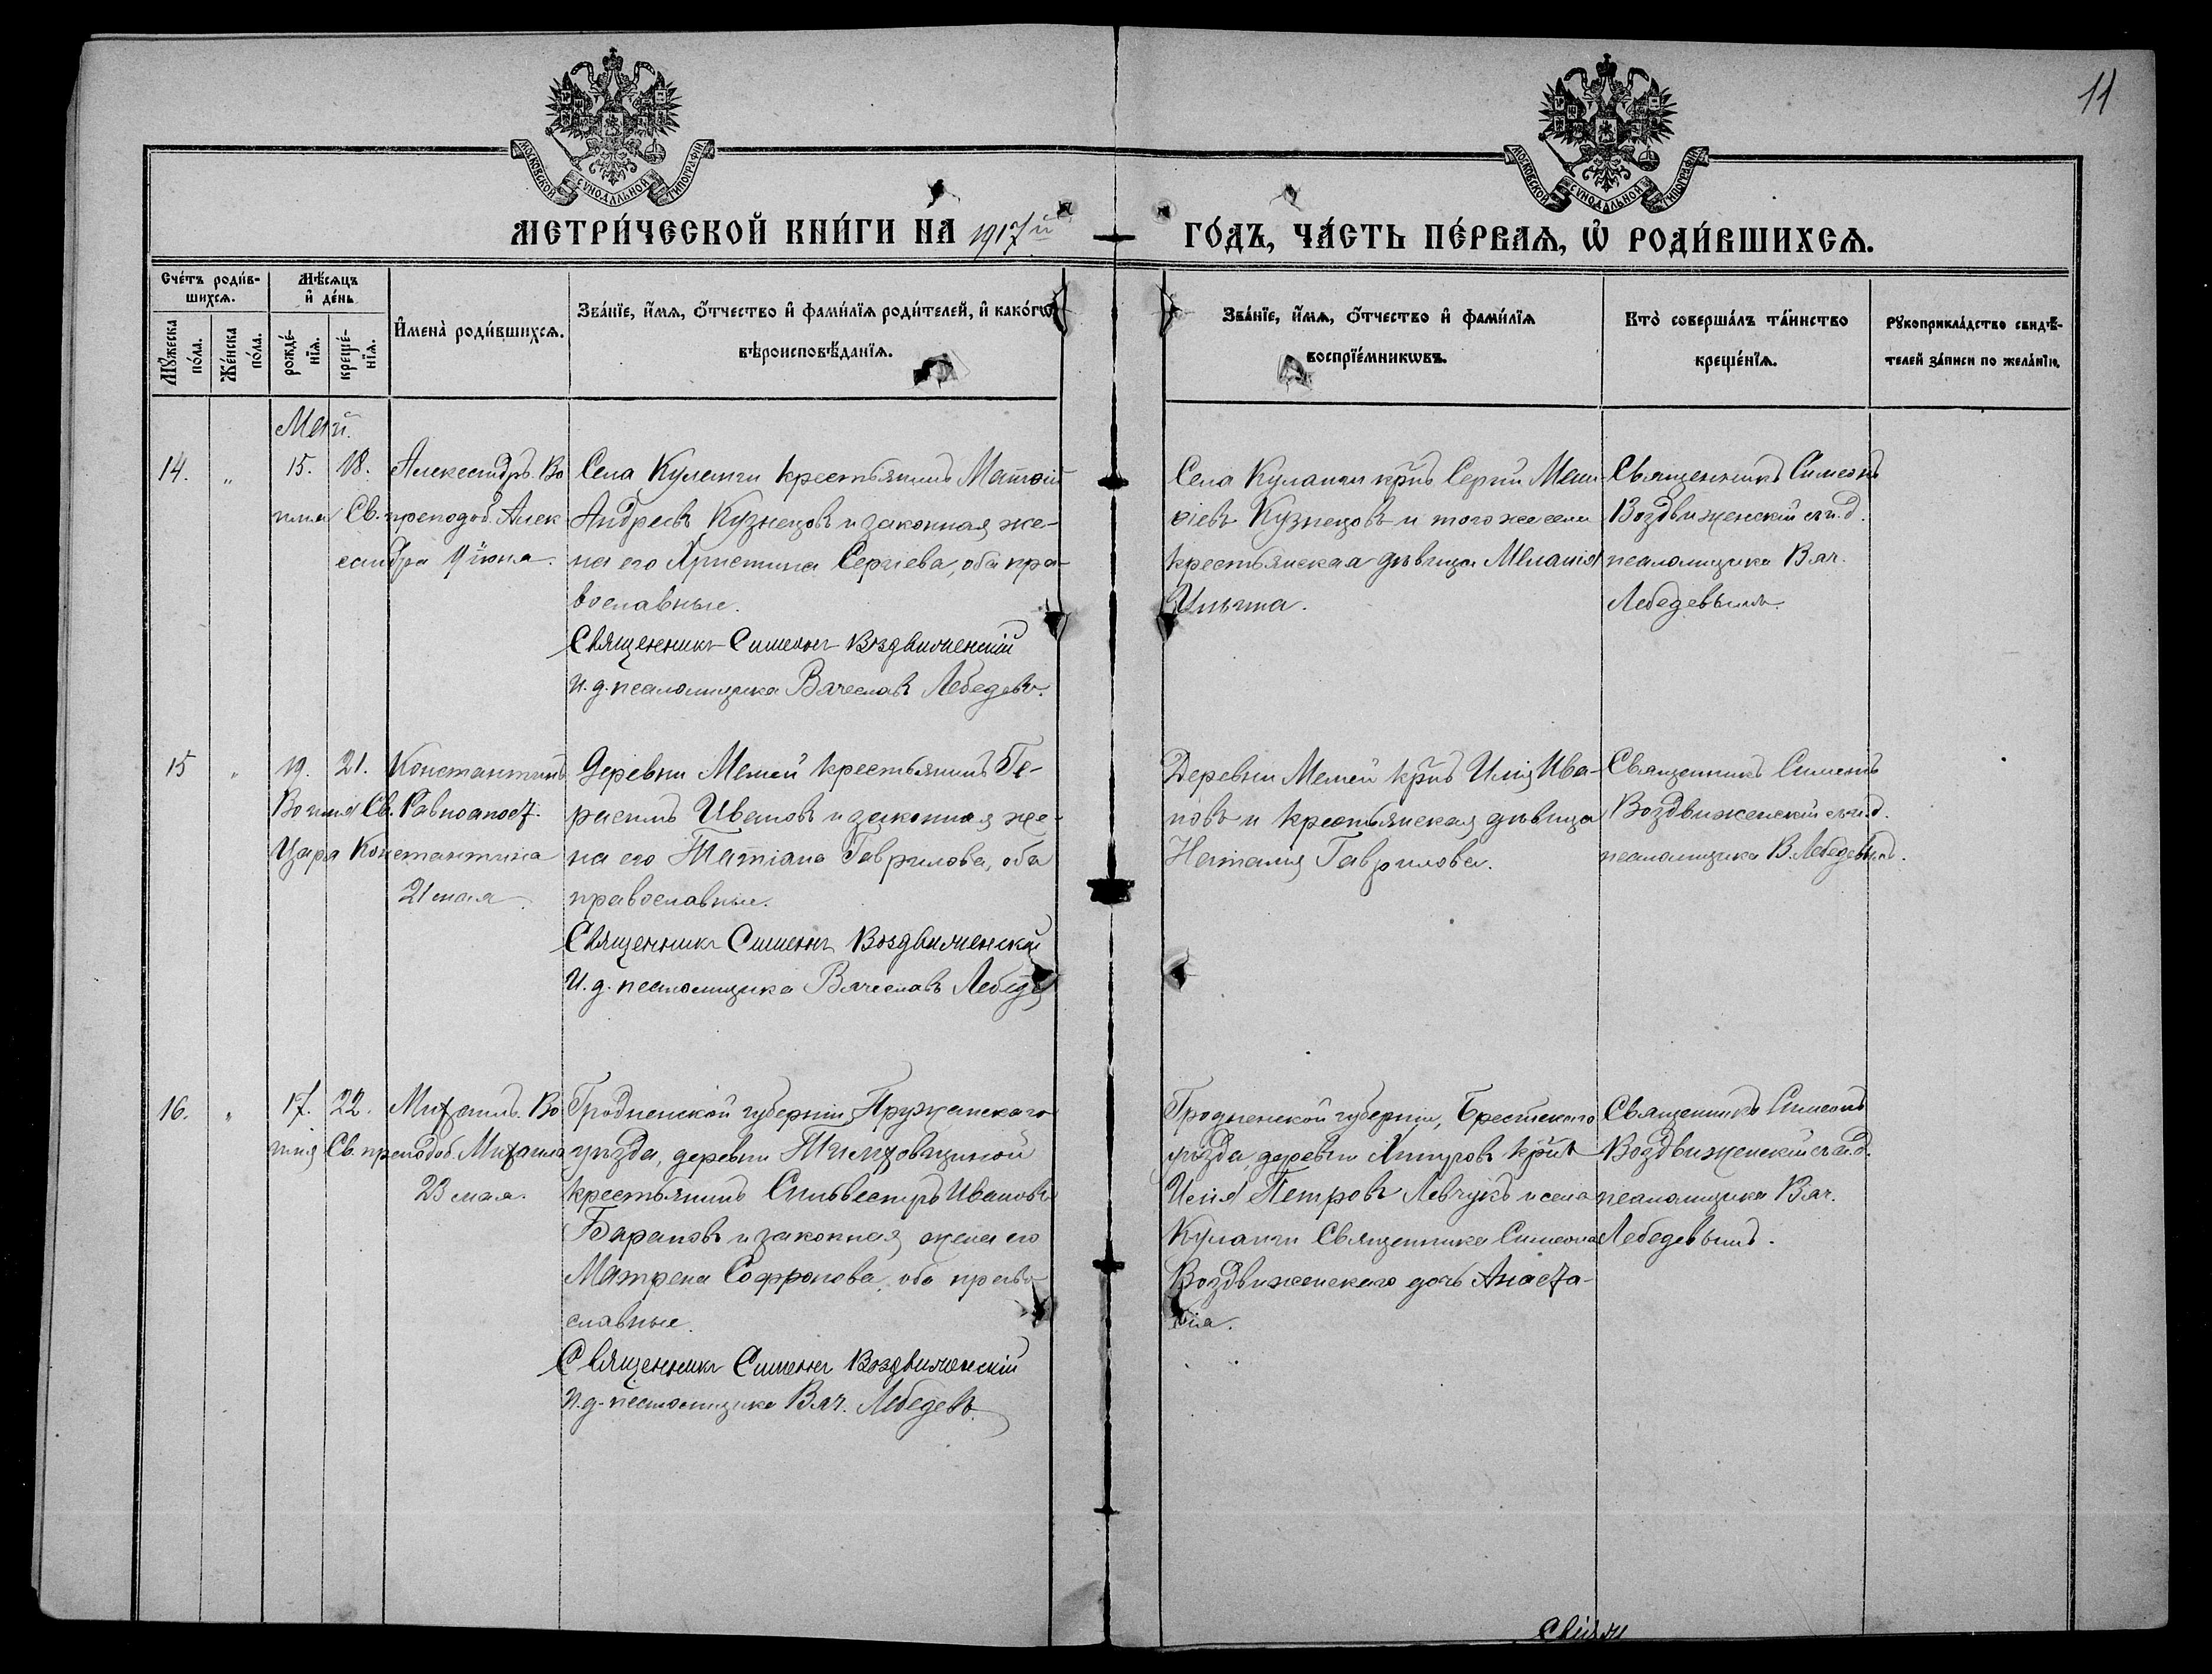 11
МОСКОВСКОЙ СѴНОДАЛЬНОЙ ТИПОГРАФІИ
МОСКОВСКОЙ СѴНОДАЛЬНОЙ ТИПОГРАФІИ
МЕТРИ́ЧЕСКОЙ КНИ́ГИ НА 1917й ГО́ДЪ, ЧА́СТЬ ПЕ́РВАѦ, Ѡ҆ РОДИ́ВШИХСѦ.
Сче́тъ роди́в-
шихсѧ.
Мѣ́сѧцъ
и҆ де́нь
Мꙋ́жеска
по́ла.
Же́нска
по́ла.
рожде́-
нїѧ.
креще́-
нїѧ.
И҆мена̀ роди́вшихсѧ.
Зва́нїе, и҆́мѧ, ѻ҆́тчество и҆ фами́лїѧ роди́телей, и҆ како́гѡ
вѣроисповѣ́данїѧ.
Зва́нїе, и҆́мѧ, ѻ҆́тчество и҆ фами́лїѧ
воспрїе́мникѡвъ.
Кто̀ соверша́лъ та́инство
креще́нїѧ.
Рꙋкоприкла́дство свидѣ́-
телей за́писи по жела́нїю.
Май.
14. " 15. 18. Александръ. Во
имя Св. преподоб. Алек
сандра 9 июня.
Села Куланги крестьянинъ Матвій
Андреевъ Кузнецовъ и законная же-
на его Христина Сергіева, оба пра-
вославные.
Священникъ Симеонъ Воздвиженскій
И. д. псаломщика Вячеславъ Лебедевъ.
Села Куланги кр̃нъ Сергій
Кузнецовъ и того же села
крестьянская дѣвица Меланія
Ильина.
Священникъ Симеонъ
Воздвиженскій съ и. д.
псаломщика Вяч.
Лебедевымъ.
15 " 19. 21. Константинъ
Во имя Св. Равноапост.
Царя Константина
21 мая.
Деревни Мемей крестьянинъ Ге-
расимъ Ивановъ и законная же-
на его Татіана Гаврилова, оба
православные.
Священникъ Симеонъ Воздвиженскій
И. д. псаломщика Вячеславъ Лебедев
Деревни Мемей кр̃нъ Илія Ива-
новъ и крестьянская дѣвица
Наталія Гаврилова.
Священникъ Симеонъ
Воздвиженскій съ и. д.
псаломщика В. Лебедевымъ.
16. " 17. 22. Михаилъ. Во
имя Св. преподоб. Михаила
23 мая.
Гродненской губерніи, Пружанскаго
уѣзда, деревни
крестьянинъ Сильвестръ Ивановъ
Барановъ и законная жена его
Матрена Софронова, оба право-
славные.
Священникъ Симеонъ Воздвиженскій
И. д. псаломщика Вяч. Лебедевъ.
Гродненской губерніи, Брестскаго
уѣзда деревни кр̃нъ
Илія Петровъ Левчукъ и села
Куланги Священника Симеона
Воздвиженскаго дочь Анаста-
сія.
Священникъ Симеонъ
Воздвиженскій съ и. д.
псаломщика Вяч.
Лебедевымъ.